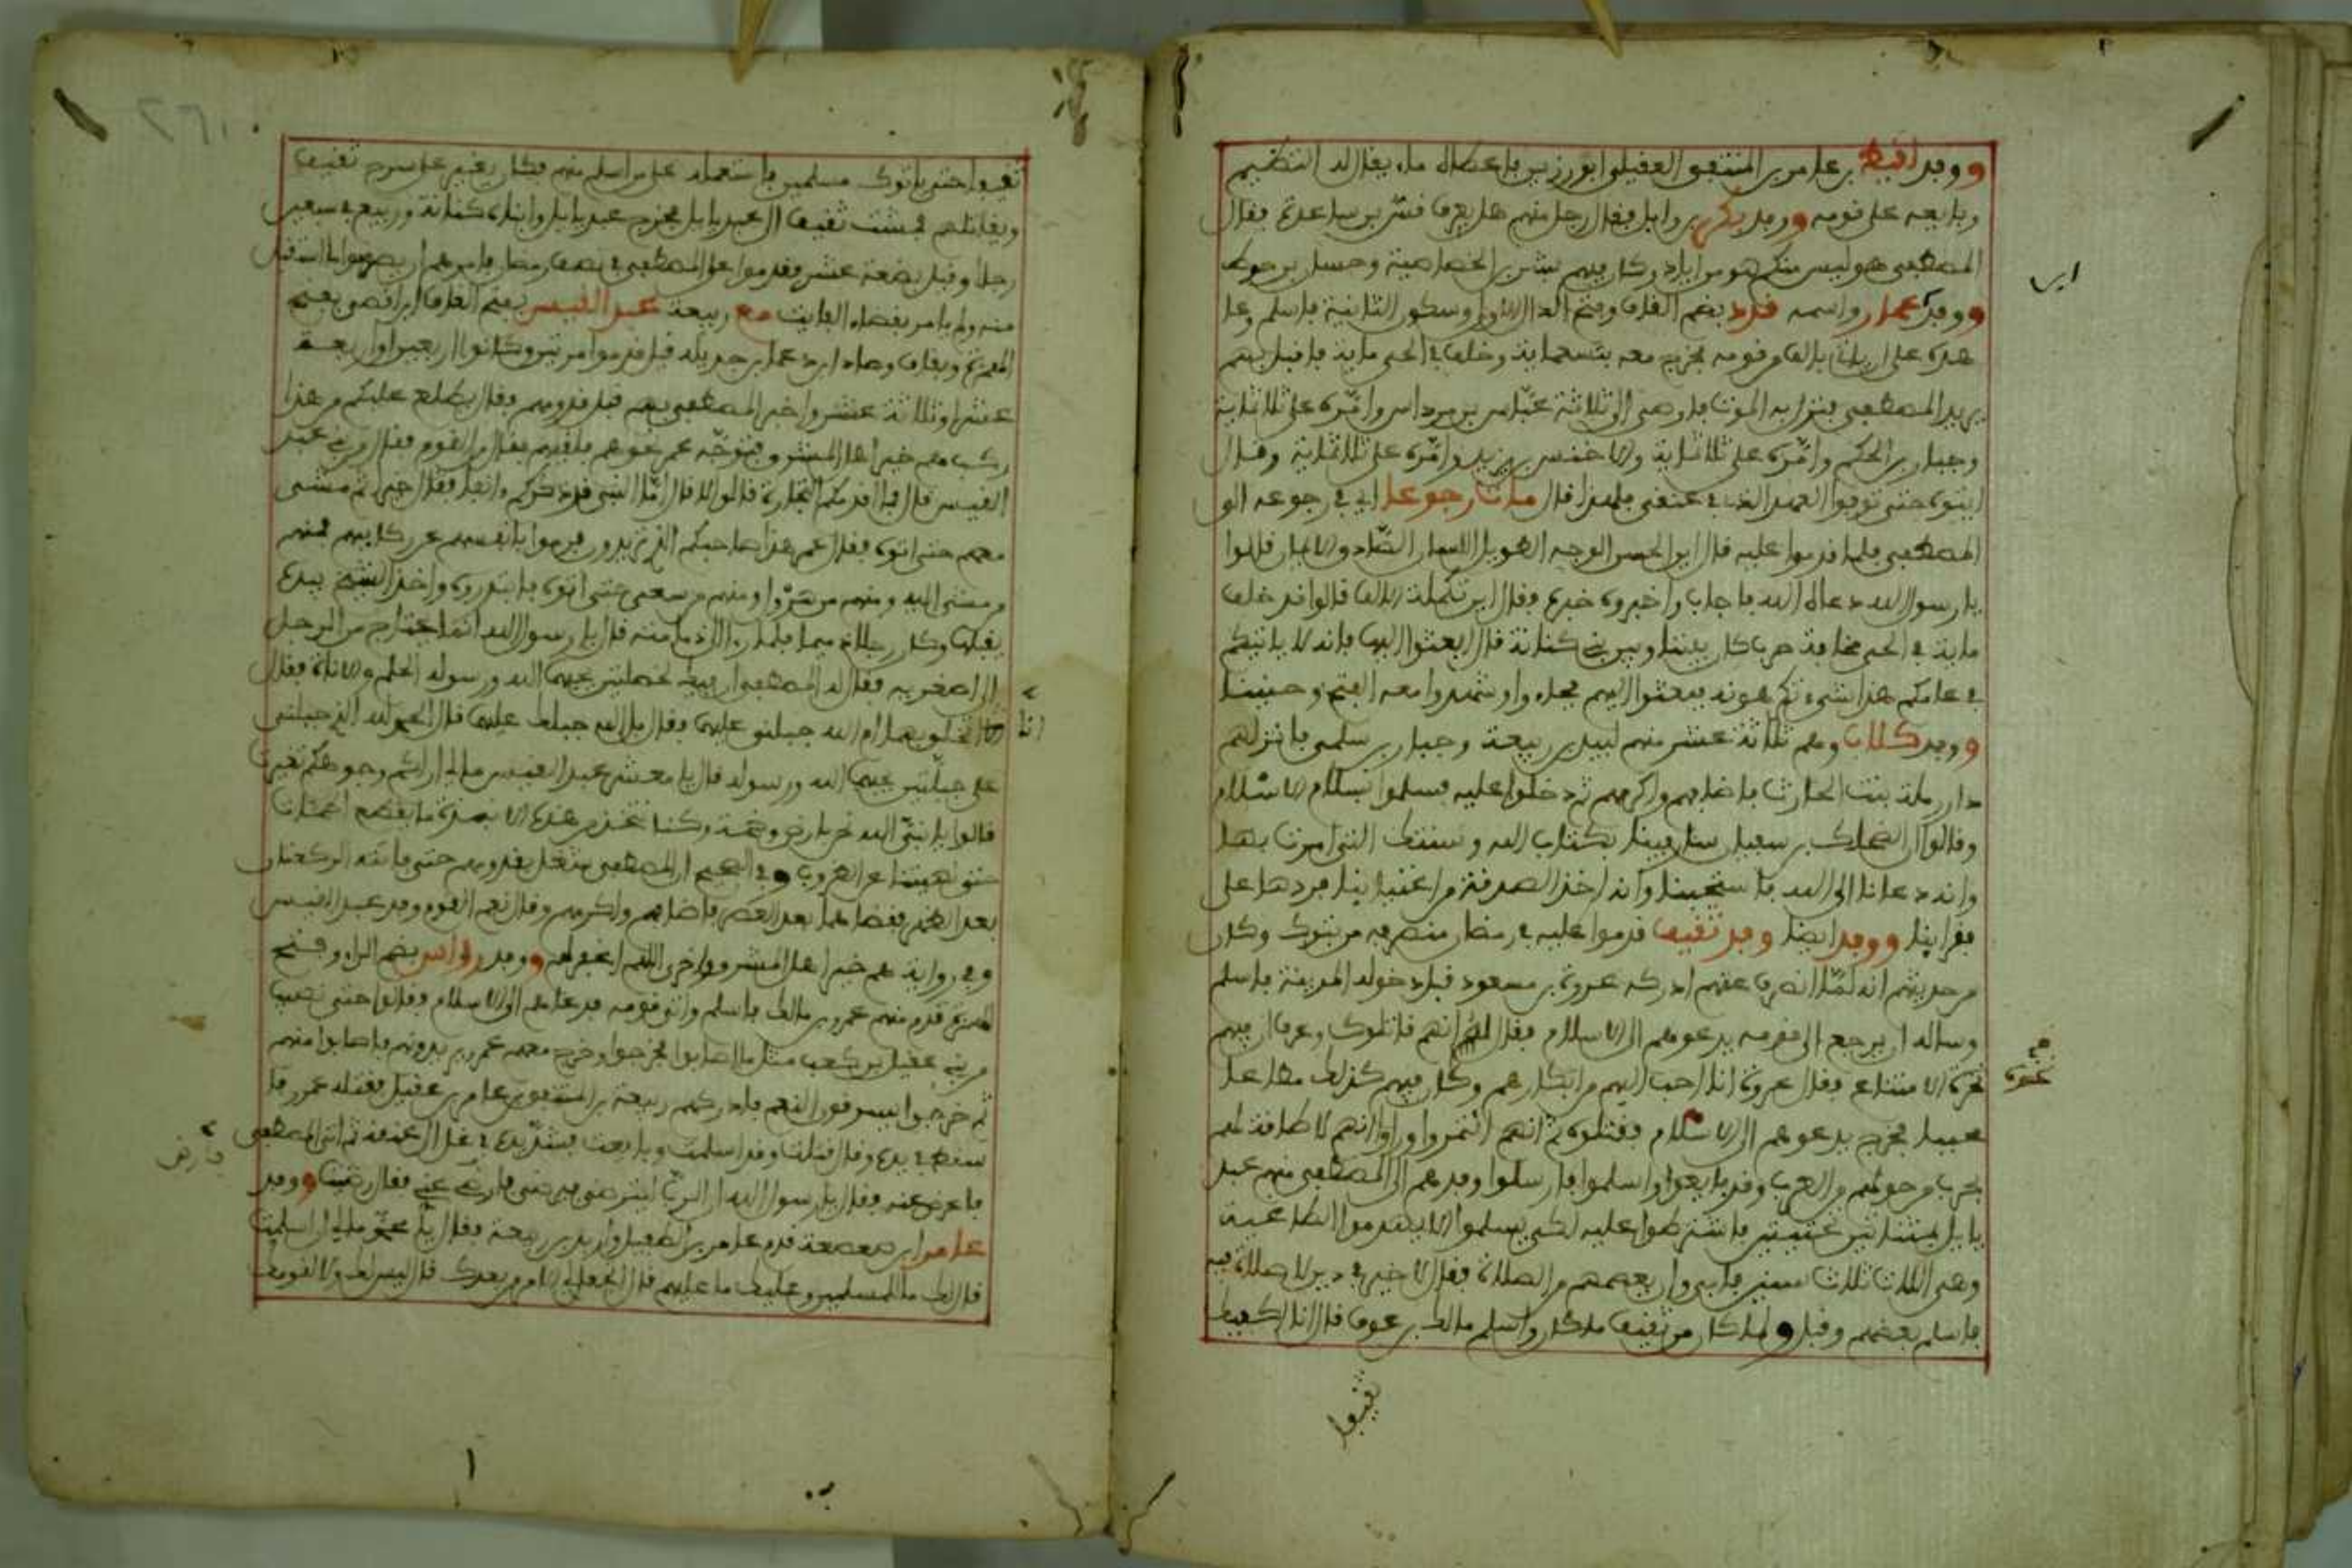 ووفد لقيط بن عامر بن المنتفق العقيلي ابو رزين فاعطاه ماء يقال له النظيم
وبايعه على قومه ووفد بكر بن وايل فقال رجل منهم هل تعرف قس بن ساعدة فقال
المصطفى هو ليس منكم هو من اياد وكان فيهم بشير بن الخصاصية وحسان بن حوط
ابن
واسمه قدد بضم القاف وفتح الدال الاولى وسكون الثانية فاسلم وعا
هده على ان ياتيه بالف من قومه فخرج معه بتسعماية وخلف في الحي ماية فاقبل بهم
يريد المصطفى فنزل به الموت فاوصى الى ثلاثة عباس بن مرداس وامره على ثلاثماية
وجبار بن الحكم وامره على ثلاثماية والاخنس بن يزيد وامره على ثلاثماية وقال
ايتوه حتى توفوا العهد الذي في عنقي فلهذا قال مات رجوعا اي في رجوعه الى
المصطفى فلما قدموا عليه قال اين الحسن الوجه الطويل اللسان الصادق الايمان قالوا
يا رسول الله دعاه الله فاجاب واخبروه خبره فقال اين تكملة الالف قالوا قد خلف
ماية في الحي مخافة حرب كان بيننا وبين بني كنانة قال ابعثوا اليها فانه لا ياتيكم
في عامكم هذا شيء تكرهونه فبعثوا اليهم فجاءوا وشهدوا معه الفتح وحنينا
ووفد كلاب وهم ثلاثة عشر منهم لبيد بن ربيعة وجبار بن سلمى فانزلهم
دار رملة بنت الحارث فاضافهم واكرمهم ثم دخلوا عليه فسلموا بسلام الاسلام
وقالوا ان الضحاك بن سفيان سار فينا بكتاب الله وسنتك التي امرت بها
وانه دعانا الى الله فاستجبنا وانه اخذ الصدقة من اغنياينا فردها على
فقراينا ووفد ايضا وفد ثقيف قدموا عليه في رمضان منصرفه من تبوك وكان
من حديثهم انه لما انصرف عنهم ادركه عروة بن مسعود قبل دخوله المدينة فاسلم
وساله ان يرجع الى قومه يدعوهم الى الاسلام فقال انهم قاتلوك وعرف ان فيهم
نخوة
الامتناع فقال عروة انا احب اليهم من ابكارهم وكان فيهم كذلك مطاعا
محببا فخرج يدعوهم الى الاسلام فقتلوه ثم انهم ائتمروا وراوا انهم لا طاقة لهم
بحرب من حولهم من العرب وقد بايعوا واسلموا فارسلوا وفدهم الى المصطفى منهم عبد
ياليل فاشترطوا عليه لكي يسلموا الا يهدموا الطاغية
وهي اللات ثلاث سنين فابى وان يعفهم من الصلاة فقال لا خير في دين لا صلاة فيه
فاسلم بعضهم وقيل ولما كان من ثقيف ما كان واسلم مالك بن عوف قال انا اكفيك
ثقيفا
ثقيفا حتى ياتوك مسلمين فاستعمله على من اسلم منهم فكان يغير على سرح ثقيف
ويقاتلهم فمشت ثقيف الى عبد ياليل فخرج عبد ياليل وابناه كنانة وربيعة في سبعين
رجلا وقيل بضعة عشر فقدموا على المصطفى في نصف رمضان فامرهم ان يصوموا ما استقبل
منه ولم يامر بقضاء الفايت مع ربيعة عبد القيس بفتح القاف ابن افصى بفتح
الهمزة وبفاف وصاد ابن دعمي بن جديلة قيل قدموا مرتين وكانوا اربعين او اربعة
عشر او ثلاثة عشر واخبر المصطفى بهم قبل قدومهم وقال يطلع عليكم من هذا
ركب هم خير اهل المشرق فتوجه عمر نحوهم فلقيهم فقال من القوم فقالوا من بني عبد
القيس قال فما اقدمكم التجارة قالوا لا قال اما النبي قد ذكركم وانفا فقال خيرا ثم مشى
معهم حتى اتوه فقال عمر هذا صاحبكم الذي تريدون فرموا بانفسهم عن ركايبهم فمنهم
من مشى اليه ومنهم من هرول ومنهم من سعى حتى اتوه فابتدروه واخذ الاشج بيده
يقبلها وكان رجلا دميما فلما راى دمامته قال يا رسول الله انما يحتاج من الرجل
الى اصغريه فقال له المصطفى ان فيك لخصلتين يحبهما الله ورسوله الحلم والاناة فقال
انا
اتخلق بهما ام الله جبلني عليهما فقال بل الله جبلك عليهما قال الحمد لله الذي جبلني
على خلتين يحبهما الله ورسوله قال يا معشر عبد القيس مالي ارى وجوهكم تغيرت
قالوا يا نبي الله نحن بارض وخمة وكنا نتخذ من هذه الانبذة ما يقطع
نهيتنا عن الظروف وفي الصحيح ان المصطفى شغل بقدومهم حتى فاتته الركعتان
بعد الظهر فقضاهما بعد العصر فاضافهم واكرمهم وقال نعم القوم وفد عبد القيس
وفي رواية هم خير اهل المشرق واخرى اللهم اغفر لهم ووفد رؤاس بضم الراء وفتح
الهمزة قدم منهم عمرو بن مالك فاسلم واتى قومه فدعاهم الى الاسلام فقالوا حتى نصيب
من بني عقيل بن كعب مثل ما اصابوا فخرجوا وخرج معهم عمرو يريدونهم فاصابوا منهم
ثم خرجوا يسوقون النعم فادركهم ربيعة بن المنتفق بن عامر بن عقيل فقتله عمرو
سقط في يده وقال قتلت وقد اسلمت وبايعت فشد يده في غل الى عنقه ثم اتى المصطفى
فارض
فاعرض عنه فقال يا رسول الله ان الرب ليترضى فيرضى فارض عني فقال رضيت ووفد
عامر ابن صعصعة قدم عامر بن الطفيل واربد بن ربيعة فقال يا محمد مالي ان اسلمت
قال لك ما للمسلمين وعليك ما عليهم قال اتجعل لي الامر من بعدك قال ليس لك ولا لقومك